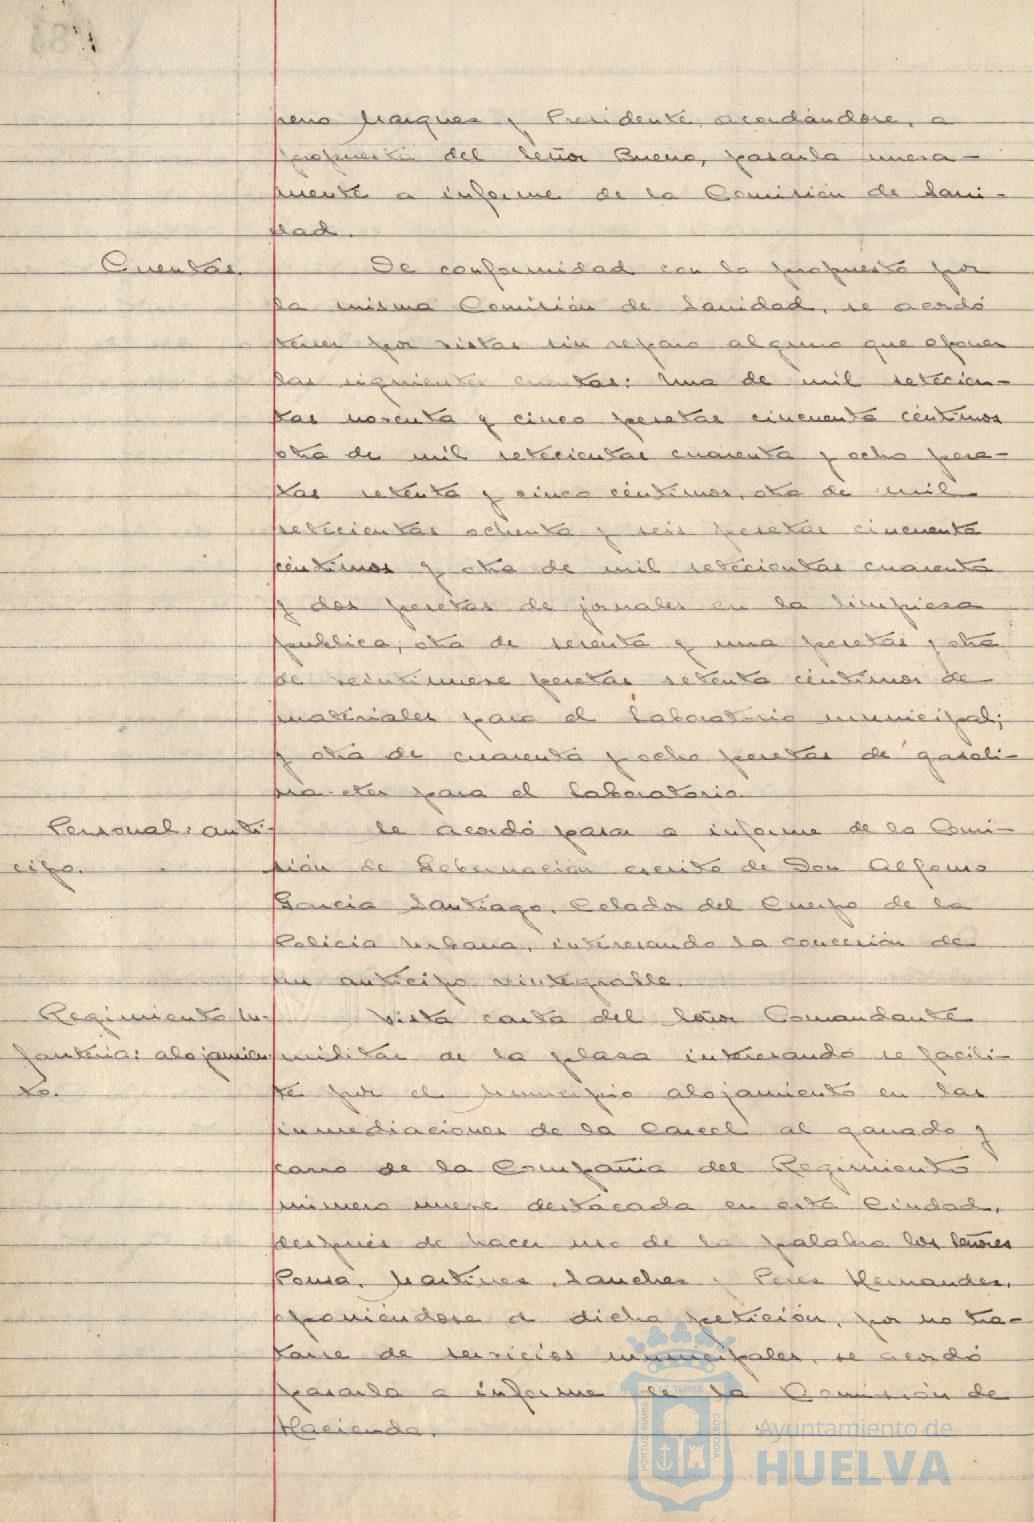 peno Marquez y Presidente, acordándose, a
propuesta del Señor Bueno, pasarla nueva-
mente a informe de la Comisión de Sani-
dad.
Cuentas. De conformidad con lo propuesto por
la misma Comisión de Sanidad, se acordó
tener por vistas sin reparo alguno que oponer
las siguientes cuentas: Una de mil setecien-
tas noventa y cinco pesetas cincuenta céntimos
otra de mil setecientas cuarenta y ocho pese-
tas setenta y cinco céntimos, otra de mil
setecientas ochenta y seis pesetas cincuenta
céntimos y otra de mil setecientas cuarenta
y dos pesetas de jornales en la limpieza
publica; otra de sesenta y una pesetas y otra
de veintinueve pesetas setenta céntimos de
materiales para el Laboratorio municipal;
y otra de cuarenta y ocho pesetas de gasoli-
na-eter para el Laboratorio.
Personal: anti- Se acordó pasar a informe de la Comi-
cipo. sión de Gobernación escrito de Don Alfonso
Garcia Santiago, Celador del Cuerpo de la
Policia Urbana, interesando la concesión de
un anticipo reintegrable.
Regimiento In- Vista carta del Señor Comandante
fanteria: alojamien- militar de la plaza interesando se facili-
to. te por el Municipio alojamiento en las
inmediaciones de la Carcel al ganado y
carro de la Compañia del Regimiento
número nueve destacada en esta Ciudad,
después de hacer uso de la palabra los Señores
Ponsa, Martinez, Sanchez y Perez Hernandez,
oponiéndose a dicha petición, por no tra-
tarse de servicios municipales, se acordó
pasarla a informe de la Comisión de
Hacienda.
Ayuntamiento de
HUELVA